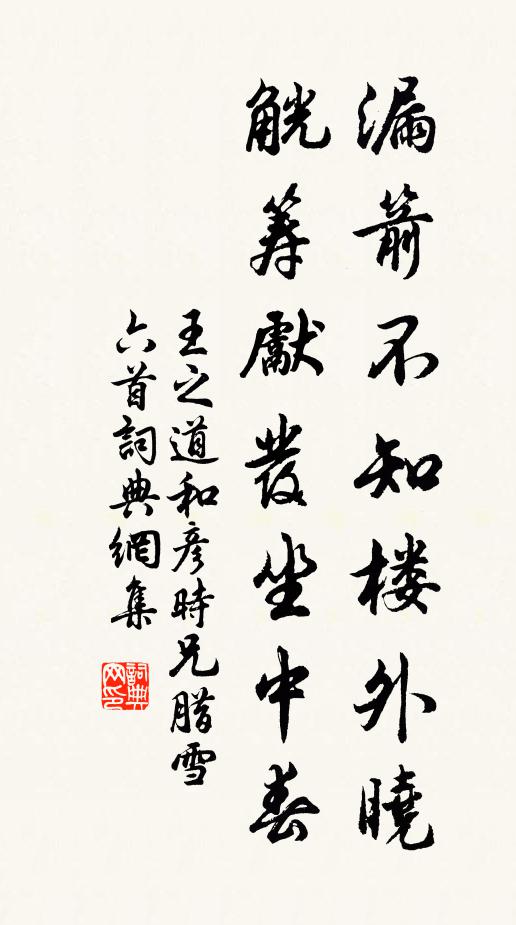 漏箭不知楼外曉
觥筹獻發坐中春
王之道和彥時兄腊雪
六首詞典網集
詞典
网印